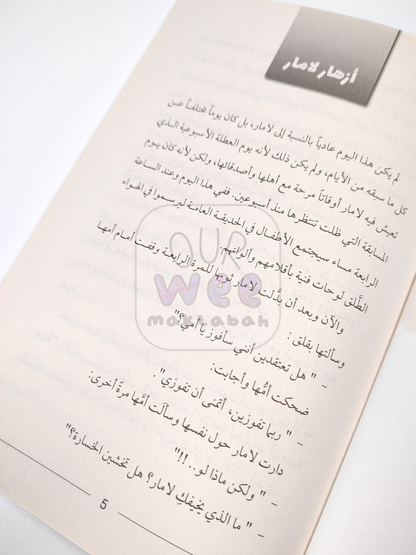 أزهار لامار
لم يكن هذا اليوم عادياً بالنسبة إلى لامار، بل كان يوماً مختلفاً عن
كل ما سبقه من الأيام، ولم يكن ذلك لأنه يوم العطلة الأسبوعية الذي
تعيش فيه لامار أوقاتاً مرحة مع أهلها وأصدقائها، ولكن لأنه كان يوم
المسابقة التي ظلت تنتظرها منذ أسبوعين. ففي هذا اليوم وعند الساعة
الرابعة مساء سيجتمع الأطفال في الحديقة العامة ليرسموا في الهواء
الطلق لوحات فنية بأقلامهم وألوانهم.
والآن وبعد أن بدلت لامار ثوبها للمرة الرابعة وقفت أمام أمها
وسألتها بقلق :
- " هل تعتقدين أنني سأفوز يا أمي؟"
ضحكت أمُّها وأجابت:
- " ربما تفوزين، أتمنى أن تفوزي".
دارت لامار حول نفسها وسألت أمَّها مرةً أخرى:
- " ولكن ماذا لو.. !!"
- " ما الذي يخيفكِ لامار؟ هل تخشين الخسارة؟"
5
OUR
wee
maktabah